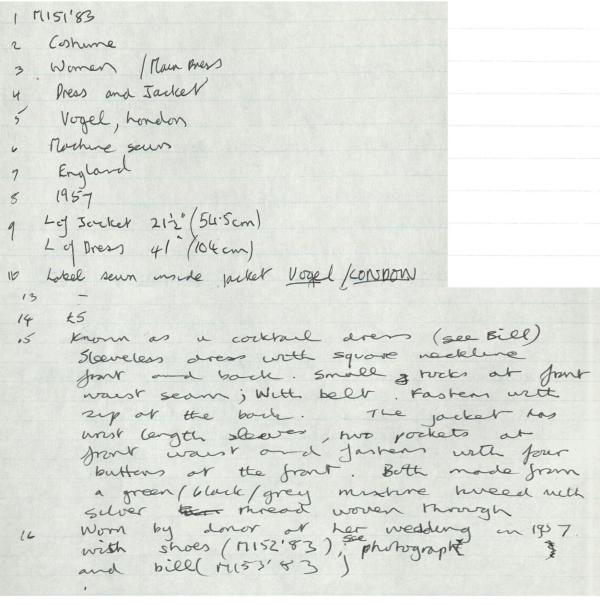 1 M151'83
2 Costume
3 Women / Main Dress
4 Dress and Jacket
5 Vogel, London
6 Machine sewn
7 England
8 1957
9 L of Jacket 21½" (54.5cm)
L of Dress 41" (104cm)
10 Label sewn inside jacket Vogel / LONDON
13 -
14 £5
15 Known as a cocktail dress (see Bill)
Sleeveless dress with square neckline
front and back. Small tucks at front
waist seam; With belt. Fastens with
zip at the back. The jacket has
wrist length sleeves, two pockets at
front waist and fastens with four
buttons at the front. Both made from
a green/black/grey mixture tweed with
silver thread woven through
16 Worn by donor at her wedding in 1957.
with shoes (M152'83); see photograph
and bill (M153'83)